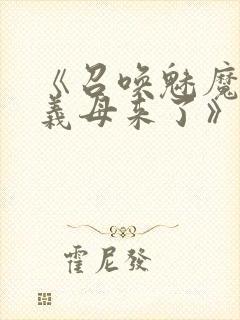 《召唤魅魔
義母来了》
霍尼發